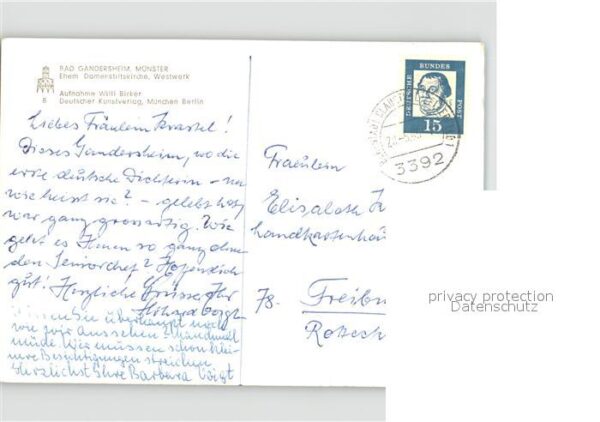 BAD GANDERSHEIM, MÜNSTER
Ehem. Damenstiftskirche, Westwerk
Aufnahme Willi Birker
8 Deutscher Kunstverlag, München Berlin
Liebes Fräulein Krastel!
Dieses Gandersheim, wo die
erste deutsche Dichterin - na
wie heisst sie? - gelebt hat,
war ganz grossartig. Wie
geht es Ihnen so ganz ohne
den Seniorchef? Hoffentlich
gut! Herzliche Grüsse Ihr
Wissen Sie überhaupt noch
wie wir aussehen - manchmal
müde. Wir müssen schon
Besichtigungen streichen
Herzlichst Ihre Barbara Voigt
DEUTSCHE BUNDESPOST
15
3392
Fräulein
Elisabeth
78.
privacy protection
Datenschutz